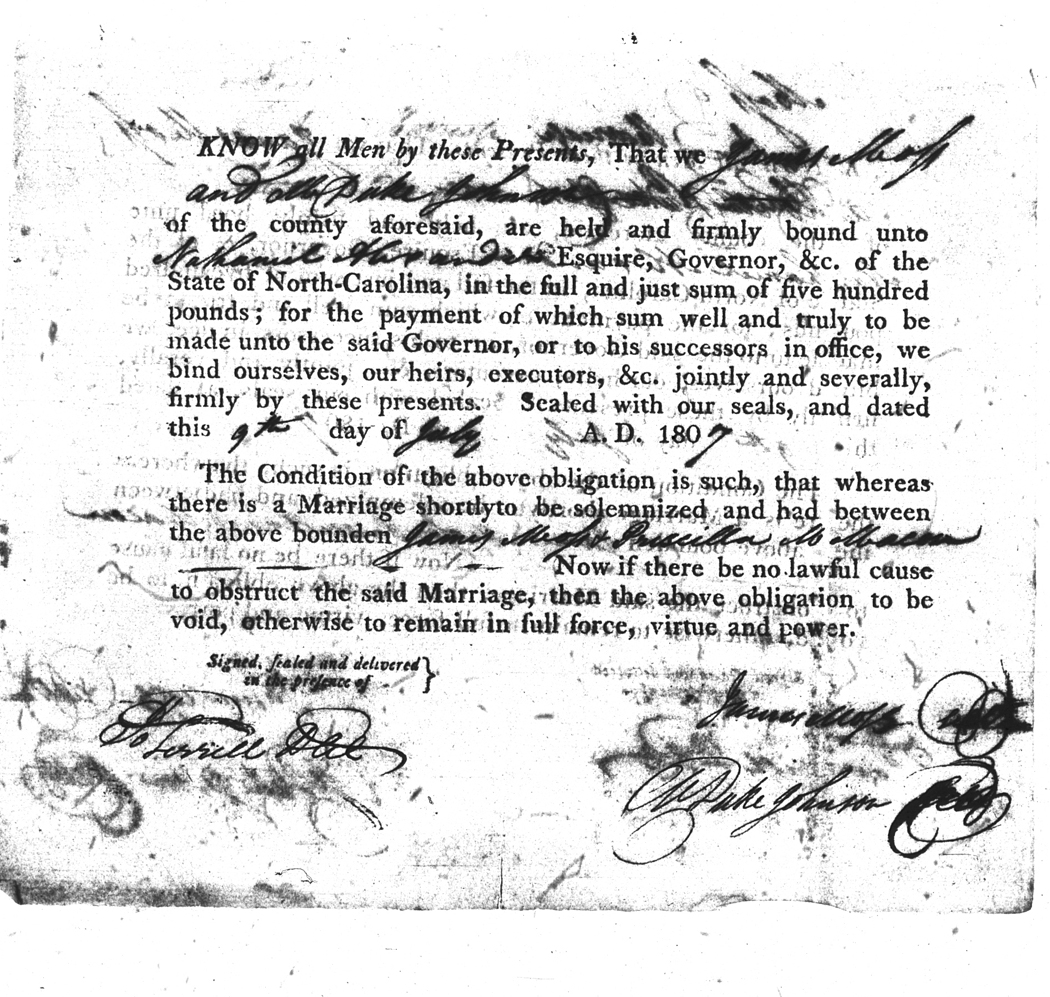 KNOW all Men by these Presents, That we James Moss
and Duke Johnson
of the county aforesaid, are held and firmly bound unto
Nathaniel Alexander Esquire, Governor, &c. of the
State of North-Carolina, in the full and just sum of five hundred
pounds; for the payment of which sum well and truly to be
made unto the said Governor, or to his successors in office, we
bind ourselves, our heirs, executors, &c. jointly and severally,
firmly by these presents. Sealed with our seals, and dated
this 9th day of July A. D. 1807
The Condition of the above obligation is such, that whereas
there is a Marriage shortly to be solemnized and had between
the above bounden James Moss & Priscilla
Now if there be no lawful cause
to obstruct the said Marriage, then the above obligation to be
void, otherwise to remain in full force, virtue and power.
Signed, sealed and delivered }
in the presence of
James Moss
Jo Terrell DCC
Duke Johnson